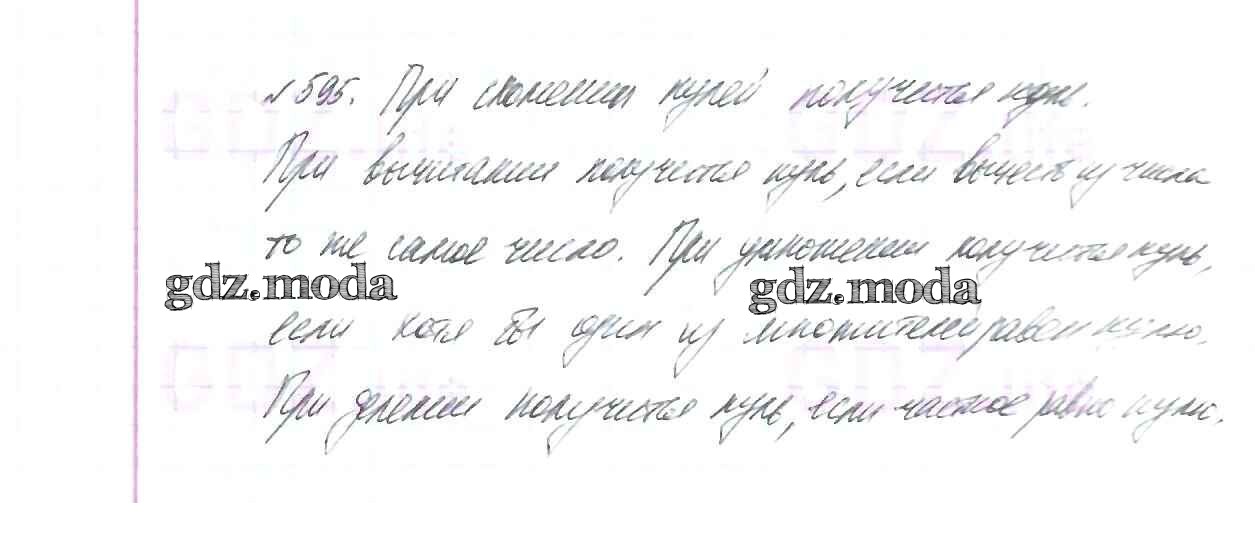 №595. При сложении нулей получается нуль.
При вычитании получается нуль, если вычесть из числа
то же самое число. При умножении получается нуль,
gdz.moda gdz.moda
если хотя бы один из множителей равен нулю.
При делении получается нуль, если частное равно нулю.